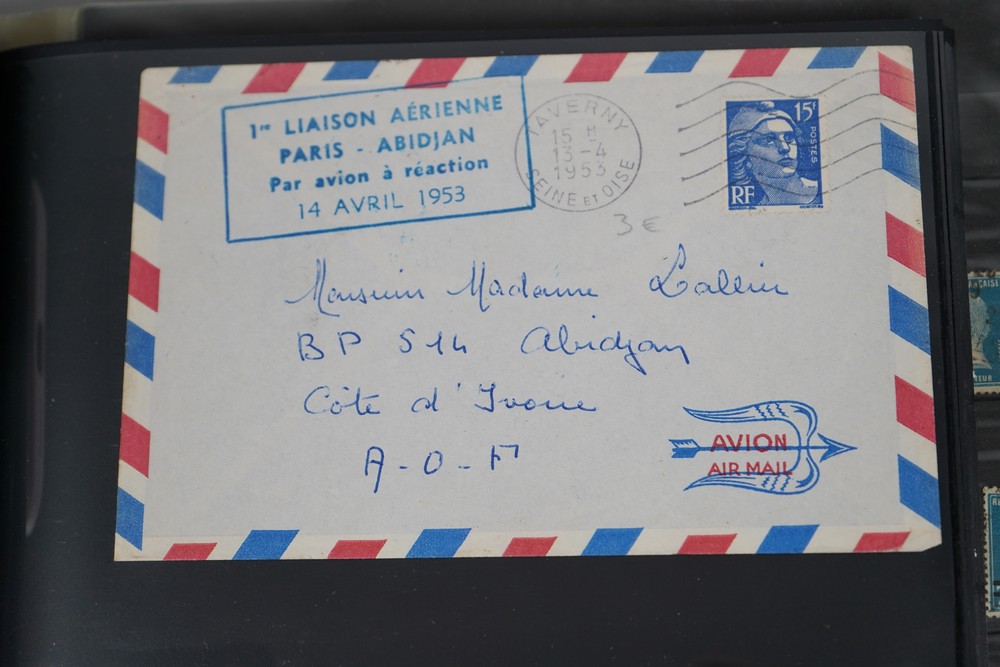 1re LIAISON AÉRIENNE
PARIS - ABIDJAN
Par avion à réaction
14 AVRIL 1953
TAVERNY
15 H
13-4
1953
SEINE ET OISE
15F
POSTES
RF
3€
Monsieur Madame
BP 514 Abidjan
Côte d'Ivoire
A-O-F
AVION
AIR MAIL